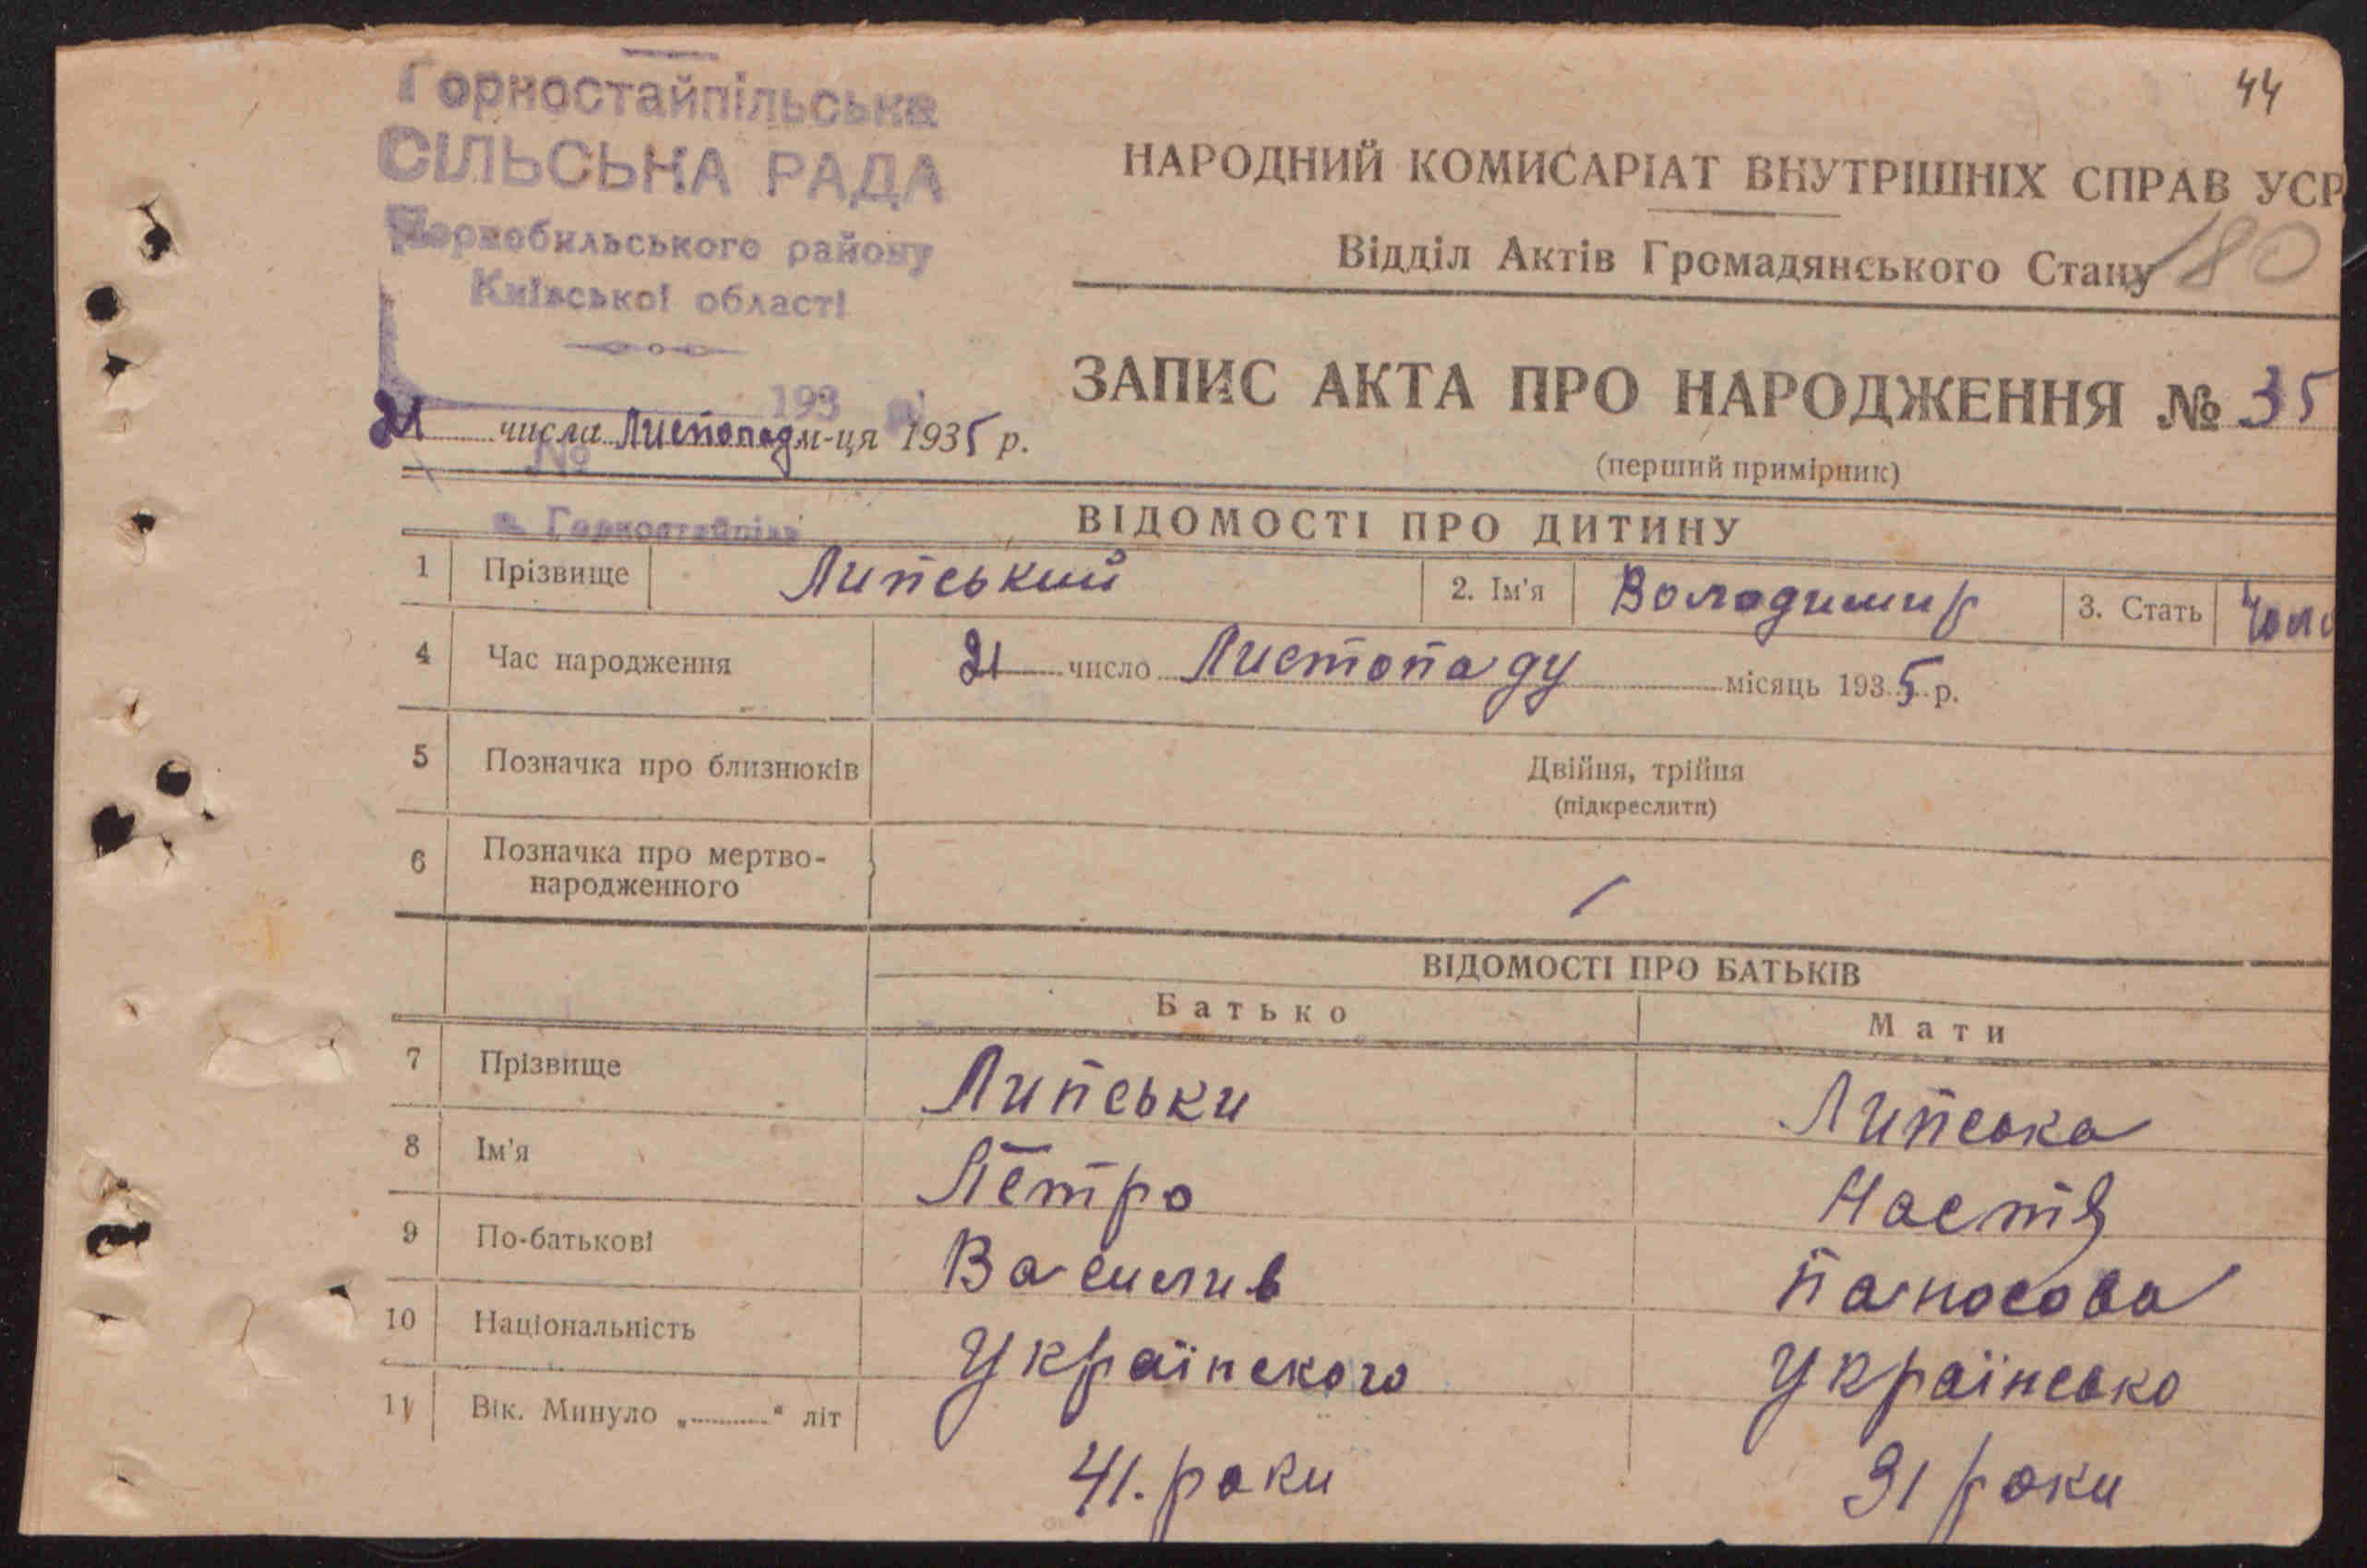 44
Горностайпільська
СІЛЬСЬКА РАДА
Чорнобильського району
Київської області
НАРОДНИЙ КОМИСАРІАТ ВНУТРІШНІХ СПРАВ УСР
Відділ Актів Громадянського Стану
180
193
21 числа Листопад м-ця 1935 р.
№
ЗАПИС АКТА ПРО НАРОДЖЕННЯ № 35
(перший примірник)
с. Горностайпіль
ВІДОМОСТІ ПРО ДИТИНУ
1 Прізвище Липський 2. Ім'я Володимир 3. Стать Чоло
4 Час народження 21 число Листопаду місяць 1935 р.
5 Позначка про близнюків Двійня, трійня
(підкреслити)
6 Позначка про мертво-
народженного
ВІДОМОСТІ ПРО БАТЬКІВ
Батько Мати
7 Прізвище Липськи Липська
8 Ім'я Петро Настя
9 По-батькові Василив Паносова
10 Національність Українского Українсько
11 Вік. Минуло „..........“ літ
41. роки 31 роки